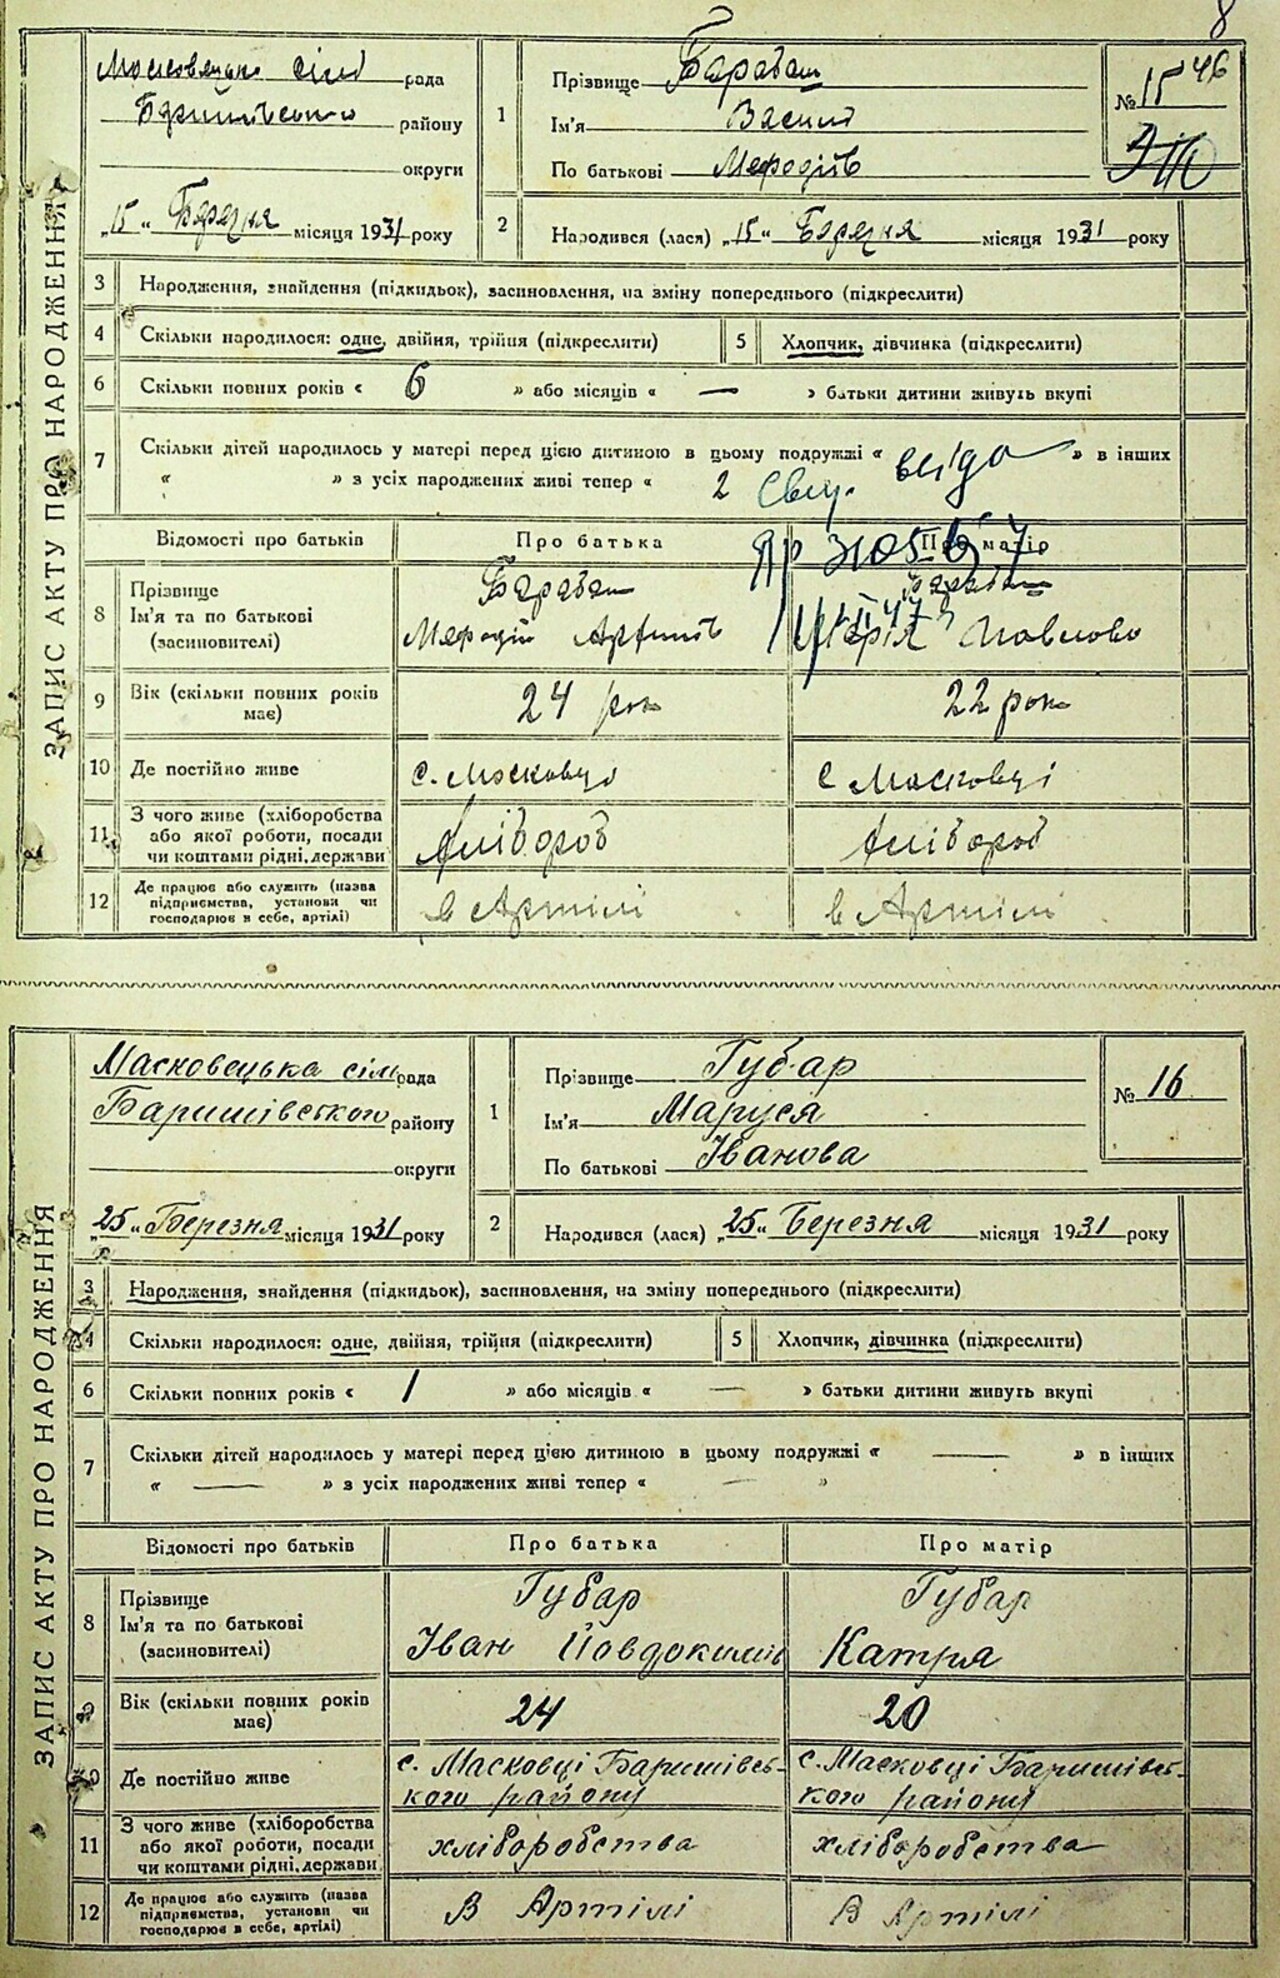 8
Московецька сіл рада
Баришівського району
округи
„15“ Березня місяця 1931 року
1
Прізвище Барабаш
Ім'я Васил
По батькові Мефодіїв
№ 15 46
2
Народився (лася) „15“ Березня місяця 1931 року
ЗАПИС АКТУ ПРО НАРОДЖЕННЯ
3 Народження, знайдення (підкидьок), засиновлення, на зміну попереднього (підкреслити)
4 Скільки народилося: одне, двійня, трійня (підкреслити) 5 Хлопчик, дівчинка (підкреслити)
6 Скільки повних років « 6 » або місяців « — » батьки дитини живуть вкупі
7 Скільки дітей народилось у матері перед цією дитиною в цьому подружжі « » в інших
« » з усіх народжених живі тепер « 2
Відомості про батьків Про батька Про матір
8 Прізвище Барабаш Барабаш
Ім'я та по батькові
(засиновителі) Мефодій Марія Павлова
9 Вік (скільки повних років має) 24 рок 22 рок
10 Де постійно живе с. Московці с Масковці
11 З чого живе (хліборобства
або якої роботи, посади
чи коштами рідні, держави хлібороб хлібороб
12 Де працює або служить (назва
підприємства, установи чи
господарює в себе, артілі) в Артілі в Артілі
Масковецька сіл рада
Баришівського району
округи
„25“ Березня місяця 1931 року
1
Прізвище Губар
Ім'я Маруся
По батькові Іванова
№ 16
2
Народився (лася) „25“ Березня місяця 1931 року
ЗАПИС АКТУ ПРО НАРОДЖЕННЯ
3 Народження, знайдення (підкидьок), засиновлення, на зміну попереднього (підкреслити)
4 Скільки народилося: одне, двійня, трійня (підкреслити) 5 Хлопчик, дівчинка (підкреслити)
6 Скільки повних років « 1 » або місяців « — » батьки дитини живуть вкупі
7 Скільки дітей народилось у матері перед цією дитиною в цьому подружжі « — » в інших
« — » з усіх народжених живі тепер « — »
Відомості про батьків Про батька Про матір
8 Прізвище Губар Губар
Ім'я та по батькові
(засиновителі) Іван Йовдокимів Катря
9 Вік (скільки повних років має) 24 20
10 Де постійно живе с. Масковці Баришівсь- с. Масковці Баришівсь-
кого району кого району
11 З чого живе (хліборобства
або якої роботи, посади
чи коштами рідні, держави хліборобства хліборобства
12 Де працює або служить (назва
підприємства, установи чи
господарює в себе, артілі) В Артілі В Артілі